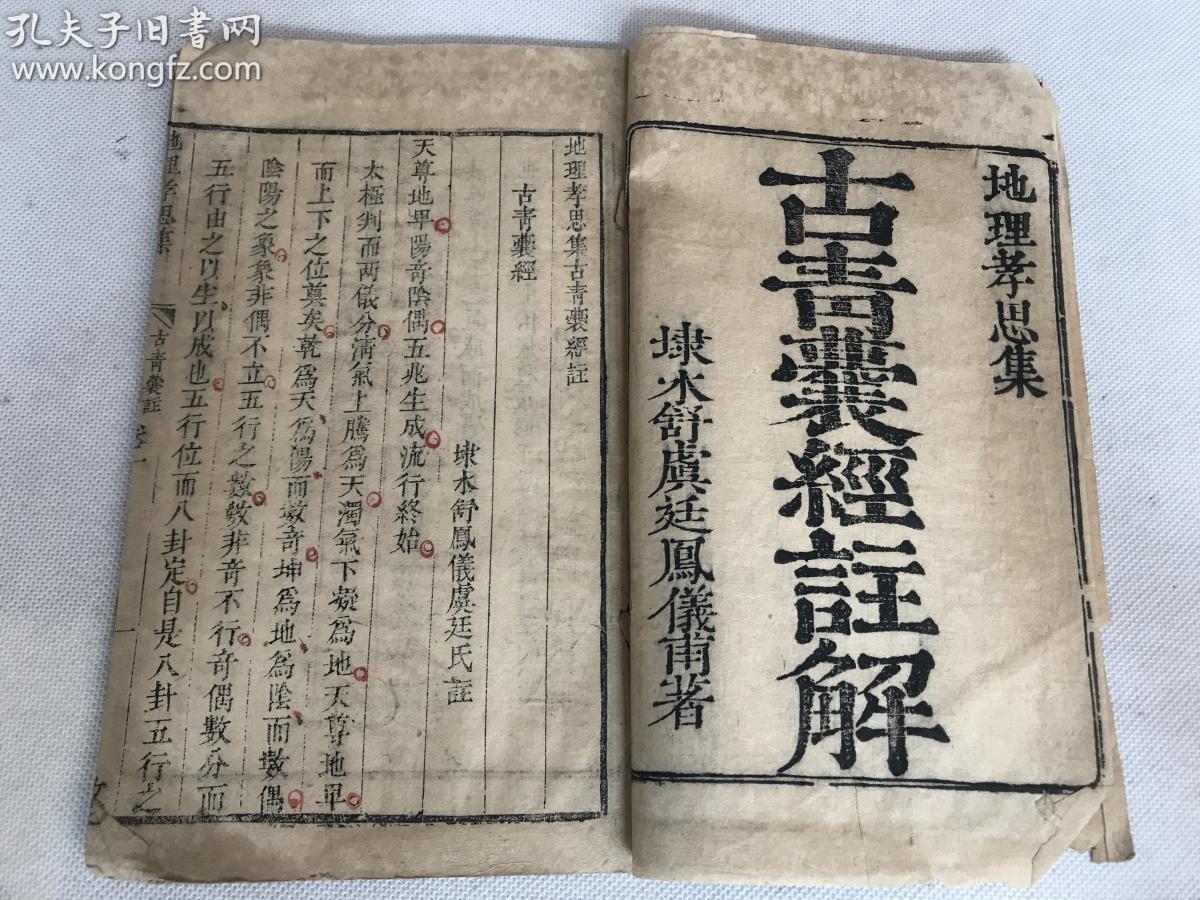 孔夫子旧书网
www.kongfz.com
地理孝思集
古青囊經註解
埭水舒虞廷鳳儀甫著
地理孝思集古青囊經註
古青囊經
埭水舒鳳儀虞廷氏註
天尊地卑陽奇陰偶五兆生成流行終始
太極判而两儀分清氣上騰爲天濁氣下凝爲地天尊地卑
而上下之位奠矣乾爲天爲陽而數奇坤爲地爲陰而數偶
陰陽之象象非偶不立五行之數數非奇不行奇偶數分而
五行由之以生以成也五行位而八卦定自是八卦五行之
地理孝思集
古青囊註